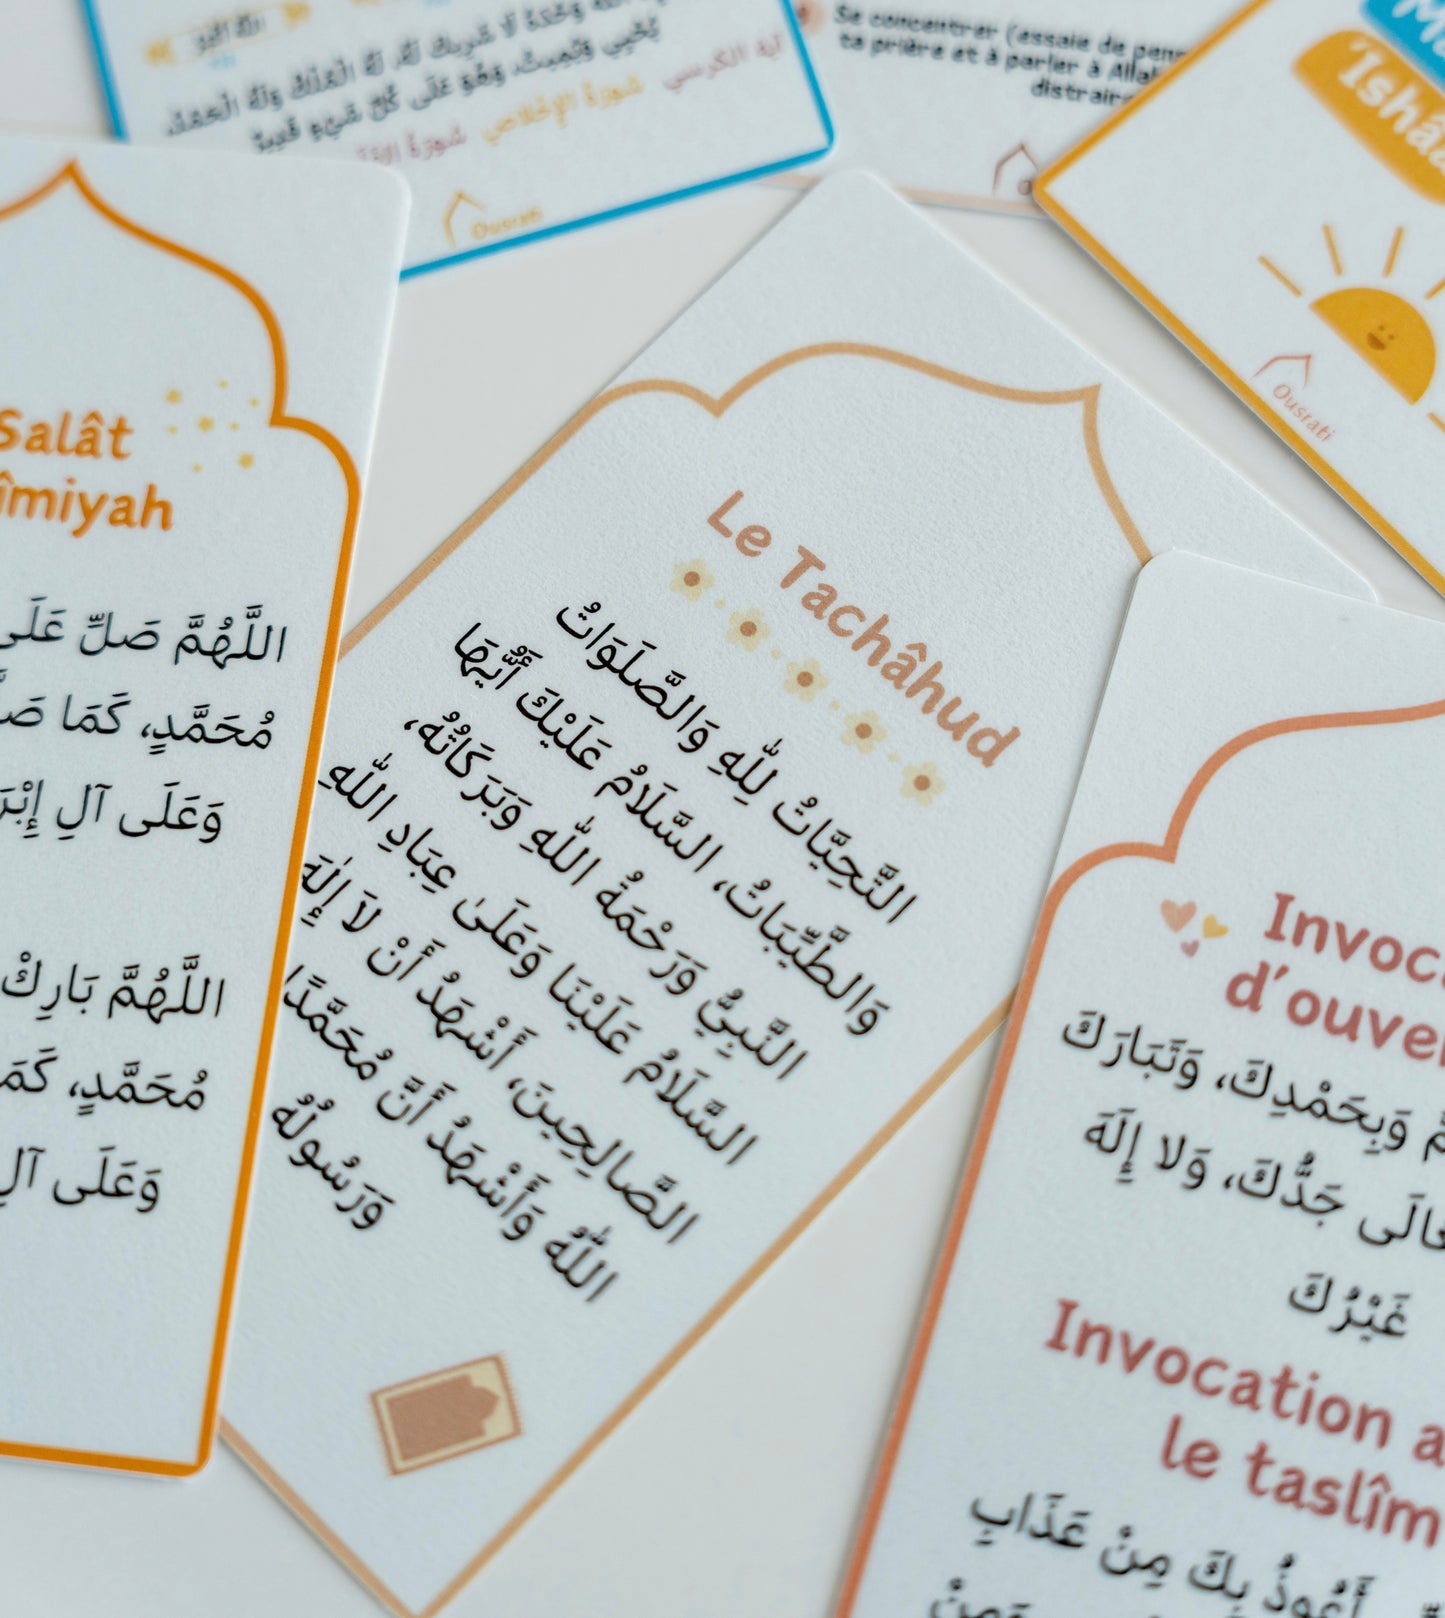 وَحْدَهُ لَا شَرِيكَ لَهُ، لَهُ الْمُلْكُ وَلَهُ الْحَمْدُ،
يُحْيِي وَيُمِيتُ، وَهُوَ عَلَى كُلِّ شَيْءٍ قَدِيرٌ
آية الكرسي سُورَةُ الإِخْلَاصِ سُورَةُ
Ousrati
Se concentrer (essaie de
ta prière et à parler à Allah
Ousrati
Salât
اللَّهُمَّ صَلِّ عَلَى
مُحَمَّدٍ، كَمَا
وَعَلَى آلِ
اللَّهُمَّ بَارِكْ
مُحَمَّدٍ،
وَعَلَى آلِ
Le Tachâhud
التَّحِيَّاتُ لِلَّهِ وَالصَّلَوَاتُ
وَالطَّيِّبَاتُ، السَّلَامُ عَلَيْكَ أَيُّهَا
النَّبِيُّ وَرَحْمَةُ اللَّهِ وَبَرَكَاتُهُ،
السَّلَامُ عَلَيْنَا وَعَلَىٰ عِبَادِ اللَّهِ
الصَّالِحِينَ، أَشْهَدُ أَنْ لاَ إِلٰهَ
اللَّهُ وَأَشْهَدُ أَنَّ مُحَمَّدًا
وَرَسُولُهُ
وَبِحَمْدِكَ، وَتَبَارَكَ
جَدُّكَ، وَلا إِلَهَ
غَيْرُكَ
Invocation
le taslîm
أَعُوذُ بِكَ مِنْ عَذَابِ
وَمِنْ